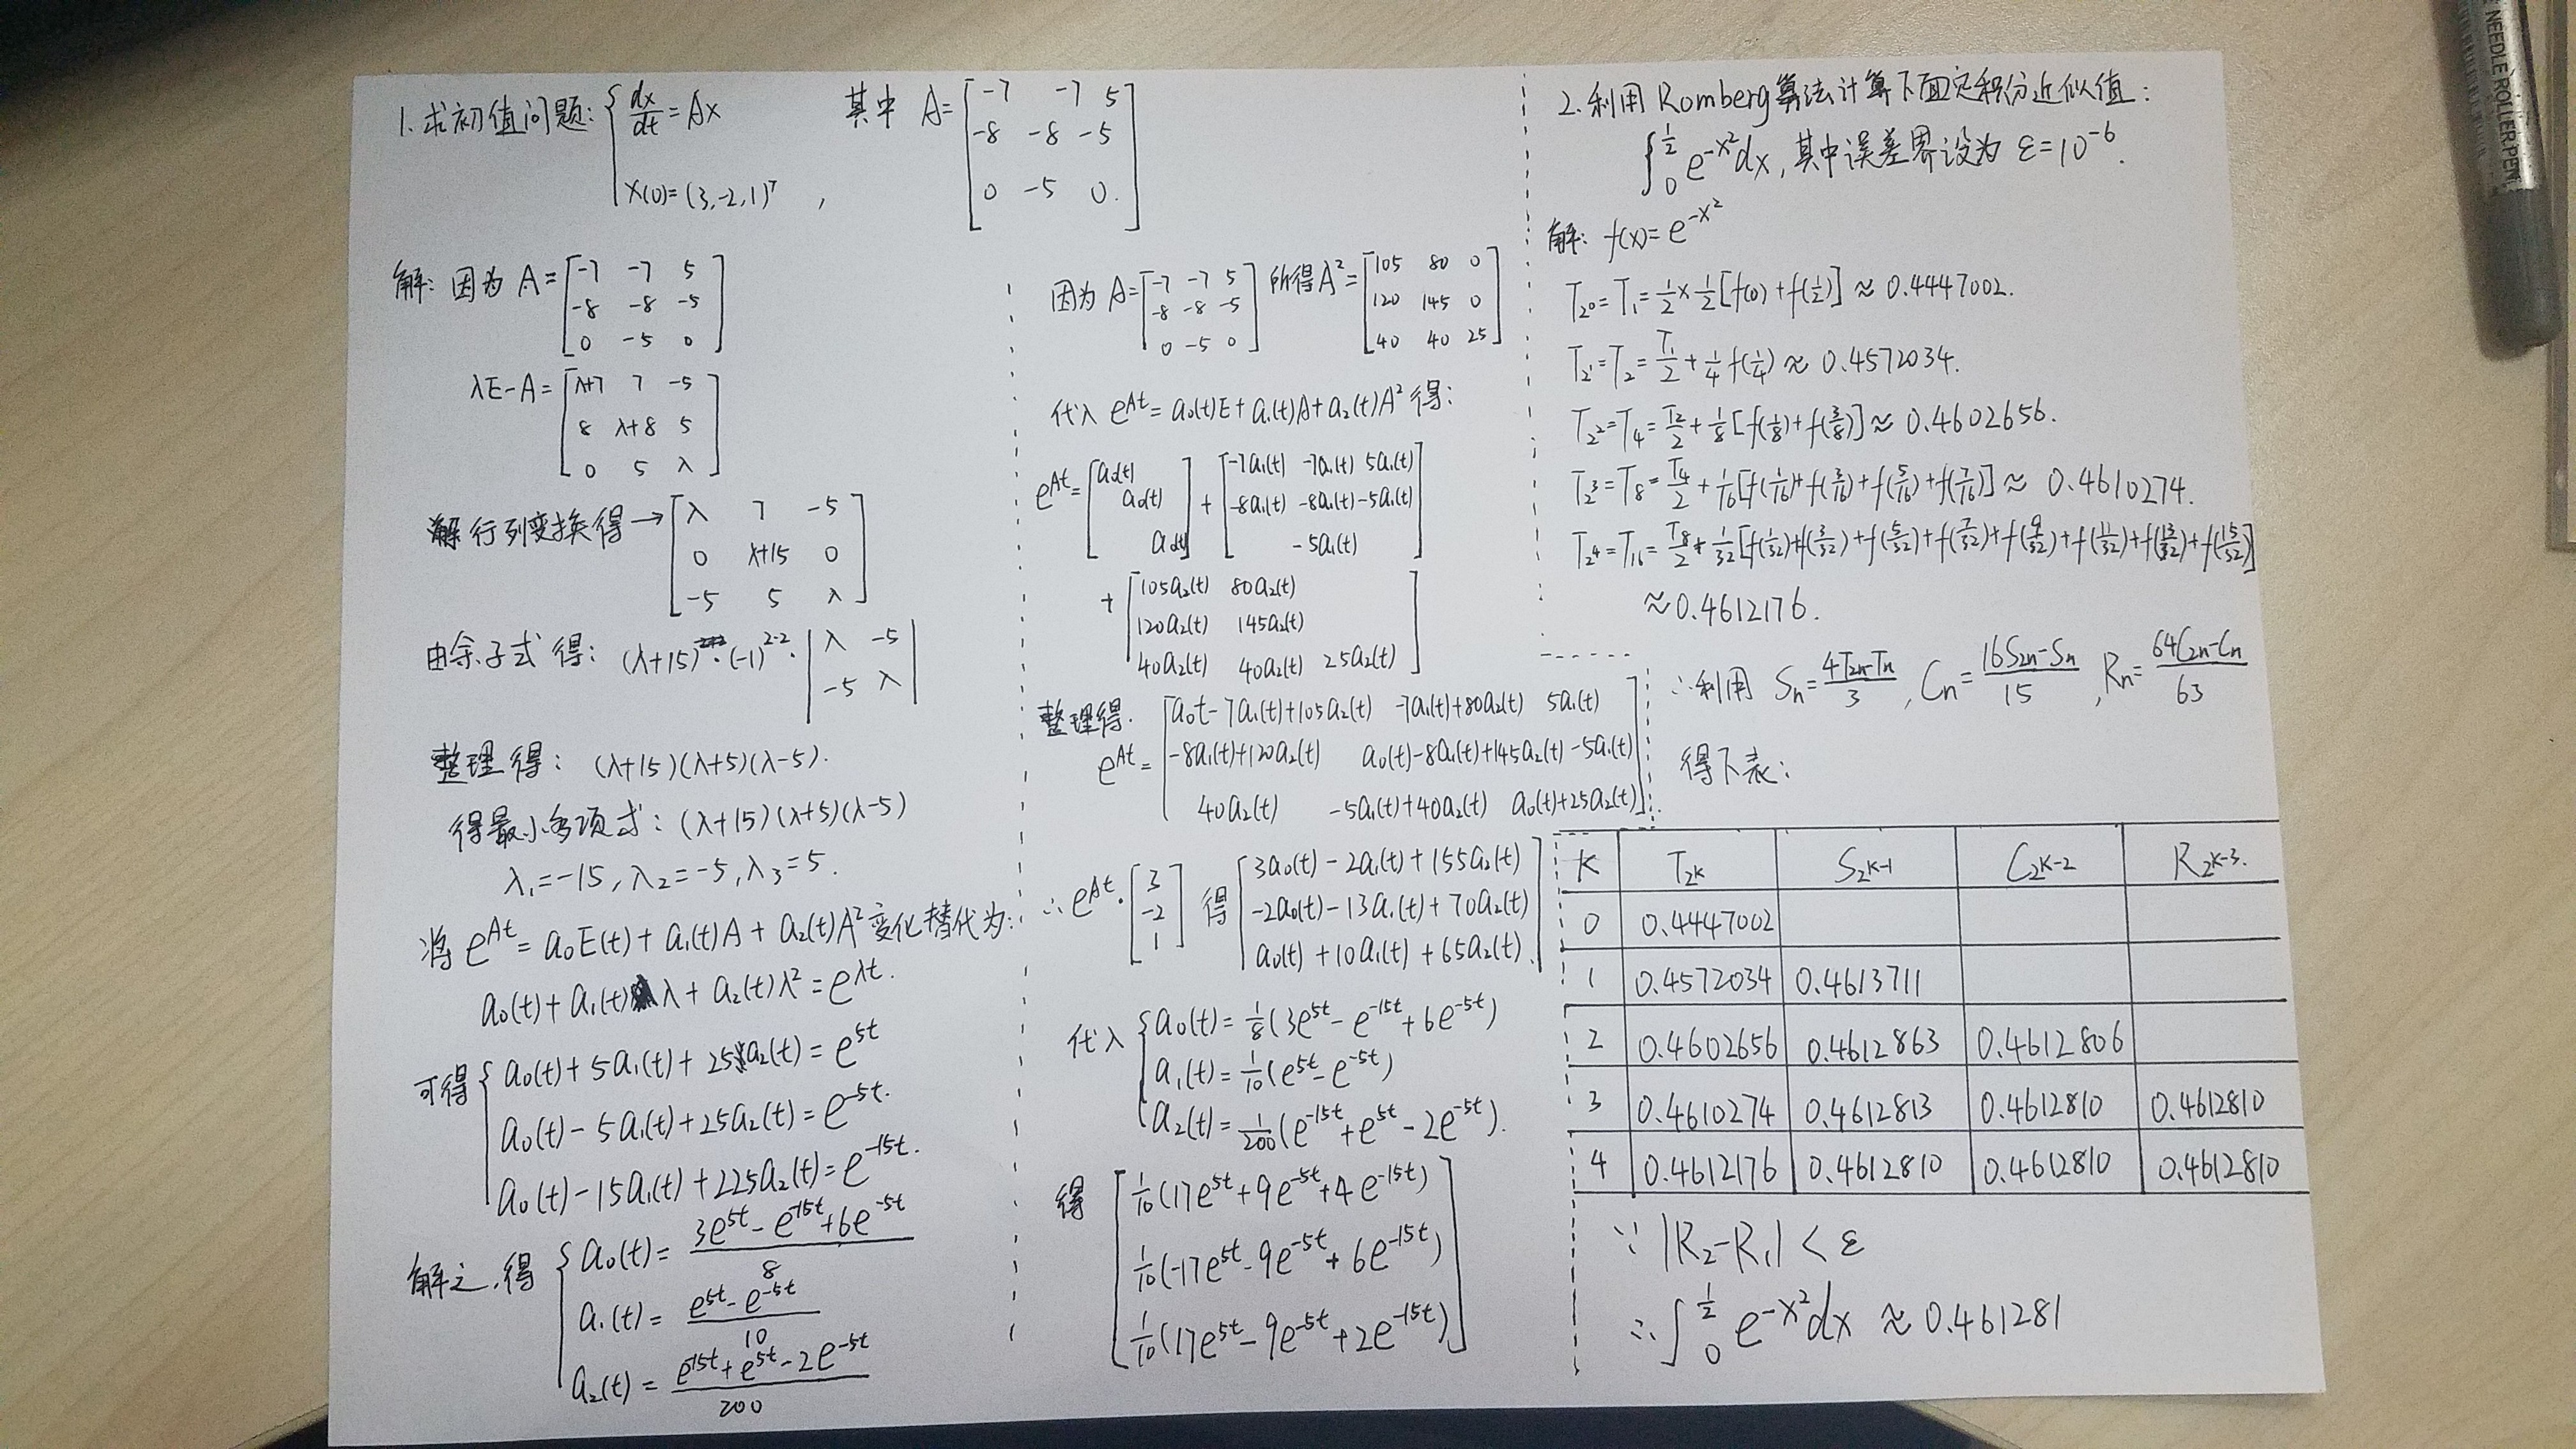 1.求初值问题: { dx/dt = Ax
x(0)=(3,-2,1)ᵀ ,
其中 A= [-7 -7 5
-8 -8 -5
0 -5 0]
解: 因为 A= [-7 -7 5
-8 -8 -5
0 -5 0]
λE-A= [λ+7 7 -5
8 λ+8 5
0 5 λ]
行列变换得→ [λ 7 -5
0 λ+15 0
-5 5 λ]
由余子式得: (λ+15)·(-1)^(2·2)· |λ -5
-5 λ|
整理得: (λ+15)(λ+5)(λ-5).
得最小多项式: (λ+15)(λ+5)(λ-5)
λ₁=-15, λ₂=-5, λ₃=5.
将 e^(At)= a₀E(t)+ a₁(t)A + a₂(t)A² 变化替代为:
a₀(t)+ a₁(t)λ+ a₂(t)λ² = e^(λt).
可得 { a₀(t)+5a₁(t)+25a₂(t)= e^(5t)
a₀(t)-5a₁(t)+25a₂(t)= e^(-5t).
a₀(t)-15a₁(t)+225a₂(t)= e^(-15t).
解之,得 { a₀(t)= (3e^(5t) - e^(-15t) + 6e^(-5t))/8
a₁(t)= (e^(5t) - e^(-5t))/10
a₂(t)= (e^(-15t) + e^(5t) - 2e^(-5t))/200
因为 A= [-7 -7 5
-8 -8 -5
0 -5 0] 所得 A²= [105 80 0
120 145 0
40 40 25]
代入 e^(At)= a₀(t)E+ a₁(t)A+ a₂(t)A² 得:
e^(At)= [a₀(t)
a₀(t)
a₀(t)] + [-7a₁(t) -7a₁(t) 5a₁(t)
-8a₁(t) -8a₁(t) -5a₁(t)
-5a₁(t)]
+ [105a₂(t) 80a₂(t)
120a₂(t) 145a₂(t)
40a₂(t) 40a₂(t) 25a₂(t)]
整理得.
e^(At)= [a₀t-7a₁(t)+105a₂(t) -7a₁(t)+80a₂(t) 5a₁(t)
-8a₁(t)+120a₂(t) a₀(t)-8a₁(t)+145a₂(t) -5a₁(t)
40a₂(t) -5a₁(t)+40a₂(t) a₀(t)+25a₂(t)].
∴ e^(At)· [3
-2
1] 得 [3a₀(t)-2a₁(t)+155a₂(t)
-2a₀(t)-13a₁(t)+70a₂(t)
a₀(t)+10a₁(t)+65a₂(t).]
代入 { a₀(t)= 1/8(3e^(5t) - e^(-15t) + 6e^(-5t))
a₁(t)= 1/10(e^(5t) - e^(-5t))
a₂(t)= 1/200(e^(-15t) + e^(5t) - 2e^(-5t)).
得 [1/10(17e^(5t)+9e^(-5t)+4e^(-15t))
1/10(-17e^(5t)-9e^(-5t)+6e^(-15t))
1/10(17e^(5t)-9e^(-5t)+2e^(-15t))]
2.利用Romberg算法计算下面定积分近似值:
∫₀^(1/2) e^(-x²)dx, 其中误差界设为 ε=10⁻⁶.
解: f(x)= e^(-x²)
T₂⁰=T₁= 1/2×1/2[f(0)+f(1/2)] ≈ 0.4447002.
T₂¹=T₂= T₁/2 + 1/4 f(1/4) ≈ 0.4572034.
T₂²=T₄= T₂/2 + 1/8[f(1/8)+f(3/8)] ≈ 0.4602656.
T₂³=T₈= T₄/2 + 1/16[f(1/16)+f(3/16)+f(5/16)+f(7/16)] ≈ 0.4610274.
T₂⁴=T₁₆= T₈/2 + 1/32[f(1/32)+f(3/32)+f(5/32)+f(7/32)+f(9/32)+f(11/32)+f(13/32)+f(15/32)]
≈0.4612176.
∴利用 Sn= (4T2n-Tn)/3 , Cn= (16S2n-Sn)/15 , Rn= (64C2n-Cn)/63
得下表:
K T2^K S2^K-1 C2^K-2 R2^K-3.
0 0.4447002
1 0.4572034 0.4613711
2 0.4602656 0.4612863 0.4612806
3 0.4610274 0.4612813 0.4612810 0.4612810
4 0.4612176 0.4612810 0.4612810 0.4612810
∵ |R₂-R₁| < ε
∴ ∫₀^(1/2) e^(-x²)dx ≈ 0.461281
NEEDLE ROLLER PEN